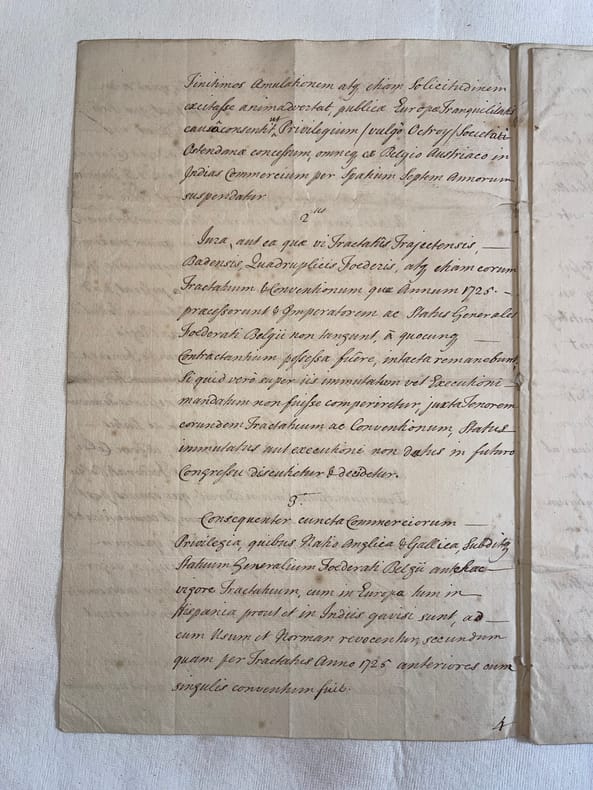 Finitimos Amulationem atq etiam Solicitudinem
excitasse animadvertat, publicæ Europæ Tranquilitatis
causâ consentit, ut Privilegium / vulgò Octroy / Societati
Ostendanæ concessum, omneq ex Belgio Austriaco in
Indias Commercium per Spatium Septem Annorum
suspendatur
2us
Jura, aut ea quæ vi Tractatûs Trajectensis,
Badensis, Quadruplicis Foederis, atq etiam eorum
Tractatuum & Conventionum quæ Annum 1725.
præcesserunt & Imperatorem ac Status Generales
Foederati Belgii non tangunt, à quocunq
Contractantium possessa fuêre, intacta remanebunt,
Si quid verò super iis immutatum vel Executioni
mandatum non fuisse comperiretur, juxta Tenorem
eorundem Tractatuum ac Conventionum, Status
immutatus aut executioni non datus in futuro
Congressu discutietur & decidetur.
3.
Consequenter cuncta Commerciorum
Privilegia, quibus Natio Anglica & Gallica, Subditiq
Statuum Generalium Foederati Belgii antehac
vigore Tractatuum, cum in Europa tum in
Hispania prout et in Indiis gavisi sunt, ad
eum Usum et Norman revocentur, secundum
quam per Tractatus Anno 1725 anteriores cum
singulis conventum fuit.
4